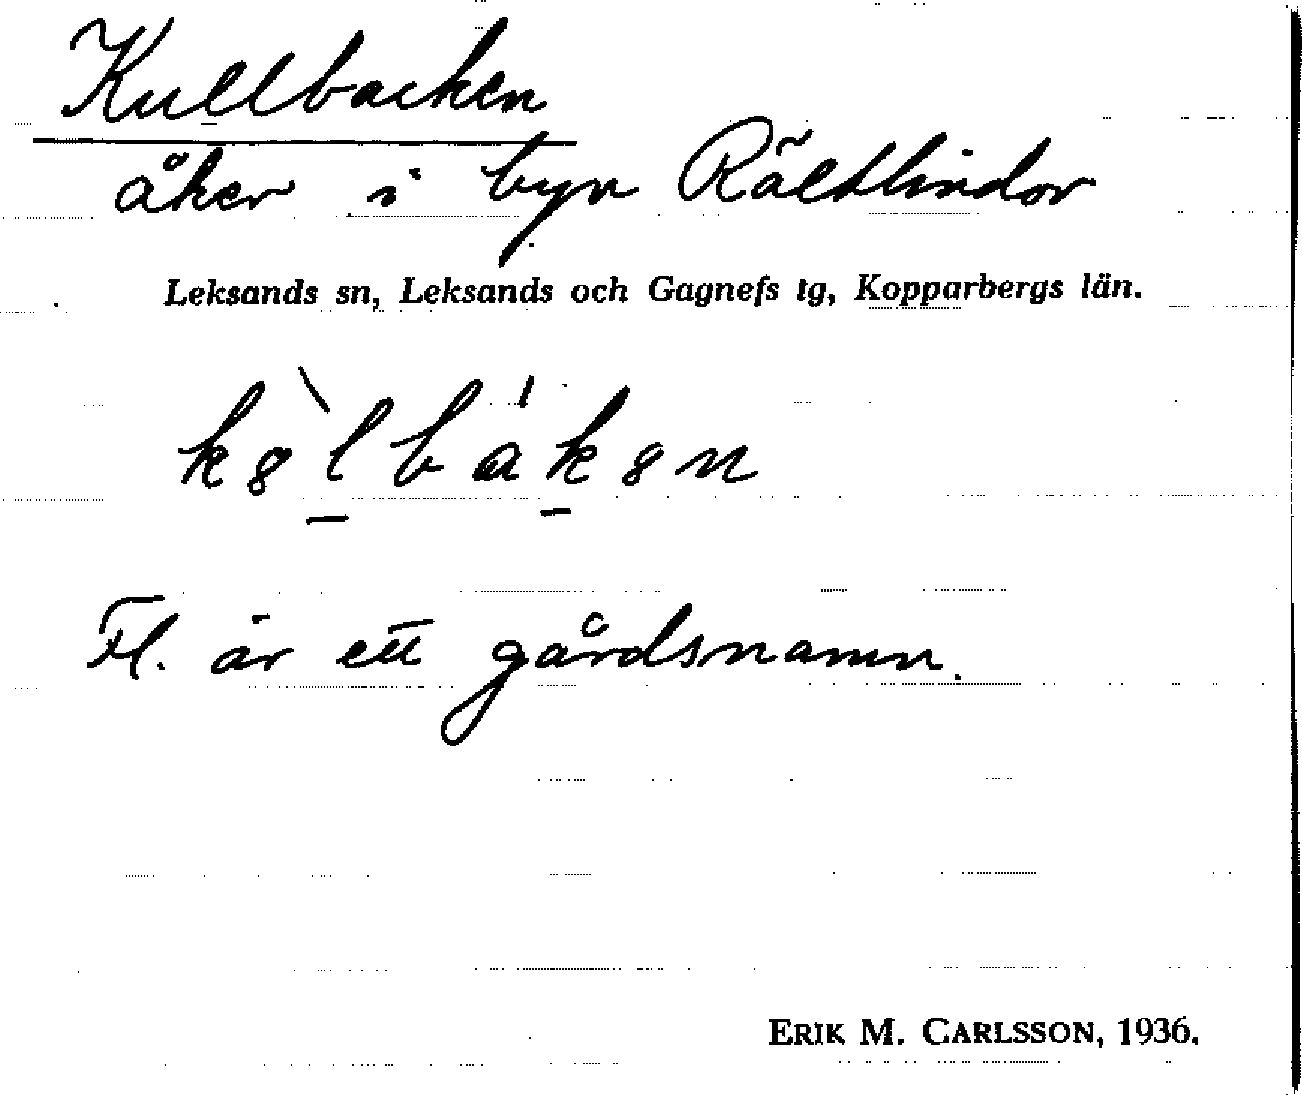 Kullbacken
åker i byn Rältlindor
Leksands sn, Leksands och Gagnefs tg, Kopparbergs län.
k8̀lbák8n
Fl. är ett gårdsnamn.
ERIK M. CARLSSON, 1936.